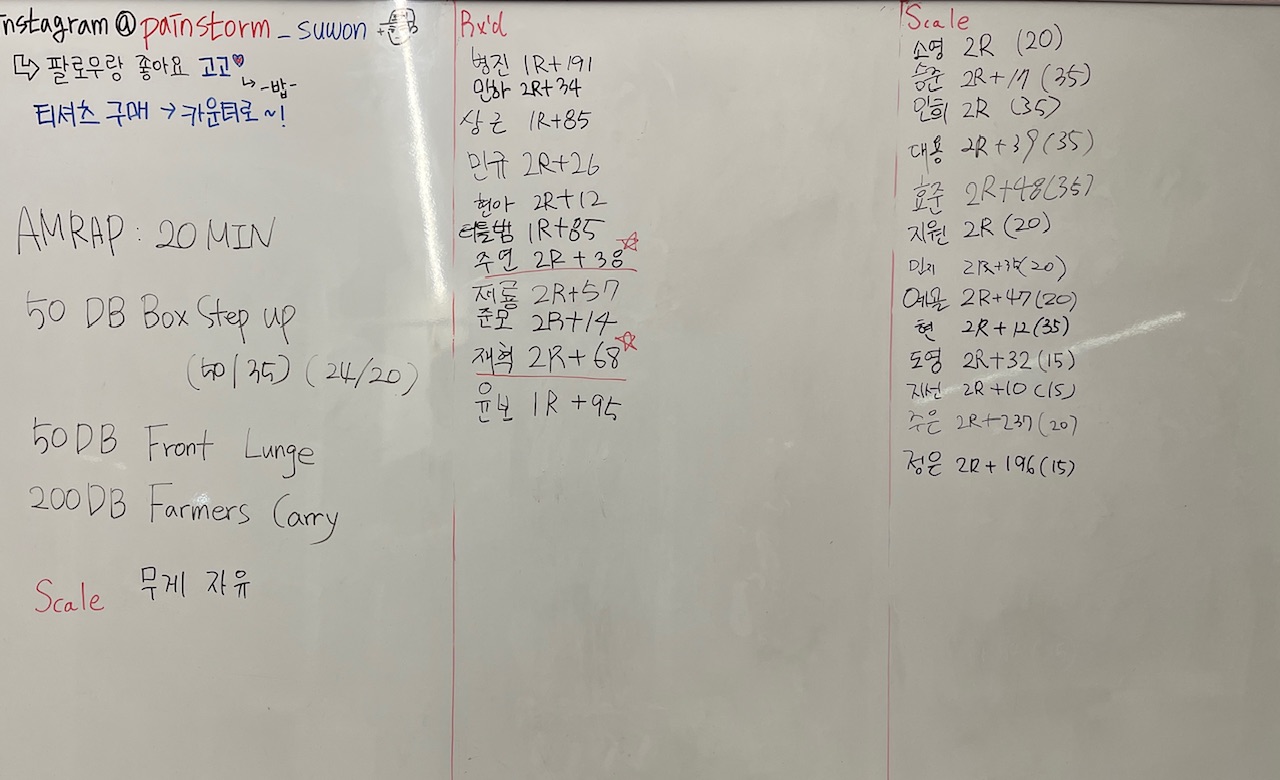 Instagram @ painstorm_suwon
팔로우랑 좋아요 고고
-밥-
티셔츠 구매 → 카운터로~!
AMRAP : 20 MIN
50 DB Box Step up
(50/35) (24/20)
50 DB Front Lunge
200 DB Farmers Carry
Scale 무게 자유
Rx'd
병진 1R+191
민하 2R+34
상근 1R+85
민규 2R+26
현아 2R+12
터틀범 1R+85
주연 2R+38
제룡 2R+57
준모 2R+14
재혁 2R+68
윤보 1R+95
Scale
소영 2R (20)
승준 2R+17 (35)
민희 2R (35)
대용 2R+39 (35)
효준 2R+48 (35)
지원 2R (20)
민지 2R+35 (20)
예솔 2R+47 (20)
현 2R+12 (35)
도영 2R+32 (15)
지선 2R+10 (15)
주은 2R+237 (20)
정은 2R+196 (15)